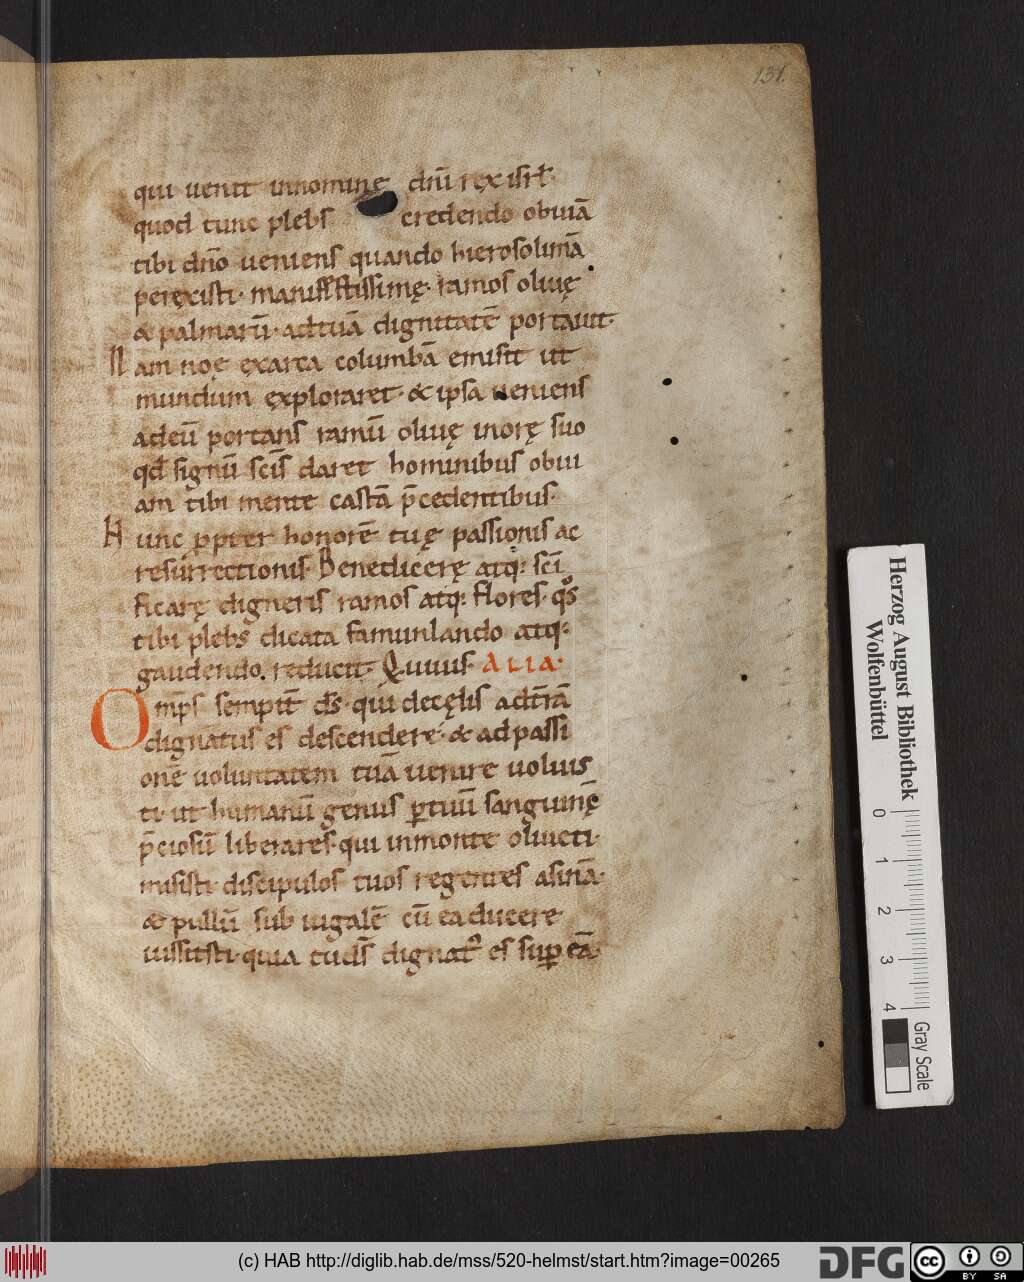 131.
qui uenit innomine dñi rex isrł.
quod tunc plebs credendo obuiā
tibi dño ueniens quando hierosolimā
peręxisti· manifestissimę· ramos oliuę
& palmarū· adtuā dignitatē portauit·
Nam noę exarca columbā emisit ut
mundum exploraret· & ipsa ueniens
adeū portans ramū oliuę inorę suo
qđ signū scīs daret hominibus obui
am tibi mente castā p̄cedentibus·
Hunc ꝓpter honorē tuę passionis ac
resurrectionis· Benedicerę atq: scī
ficarę digneris ramos atq: flores· qͦs
tibi plebs dicata famunlando atq:
gaudendo. reducit· Quiuus· ALIA·
Omp̄s sempit̄ ds̄· qui decęlis adt̄rā
dignatus es descendere· & adpassi
onē uoluntatem tuā uenire uoluis
ti· ut humanū genus ꝑtuū sanguinē
p̄ciosū liberares· qui inmonte oliueti·
misisti· discipulos tuos regentes asinā·
& pullū sub iugalē cū ea ducere
iussitsti· quia tuds̄ dignat᷒ es suꝑ eā·
Herzog August Bibliothek
Wolfenbüttel
0 1 2 3 4
Gray Scale
(c) HAB http://diglib.hab.de/mss/520-helmst/start.htm?image=00265
DFG
cc BY SA